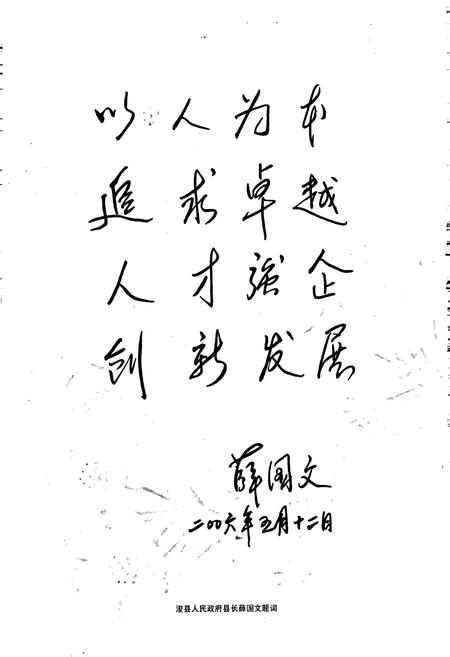 以人为本
追求卓越
人才强企
创新发展
薛国文
二00六年五月十二日
浚县人民政府县长薛国文题词